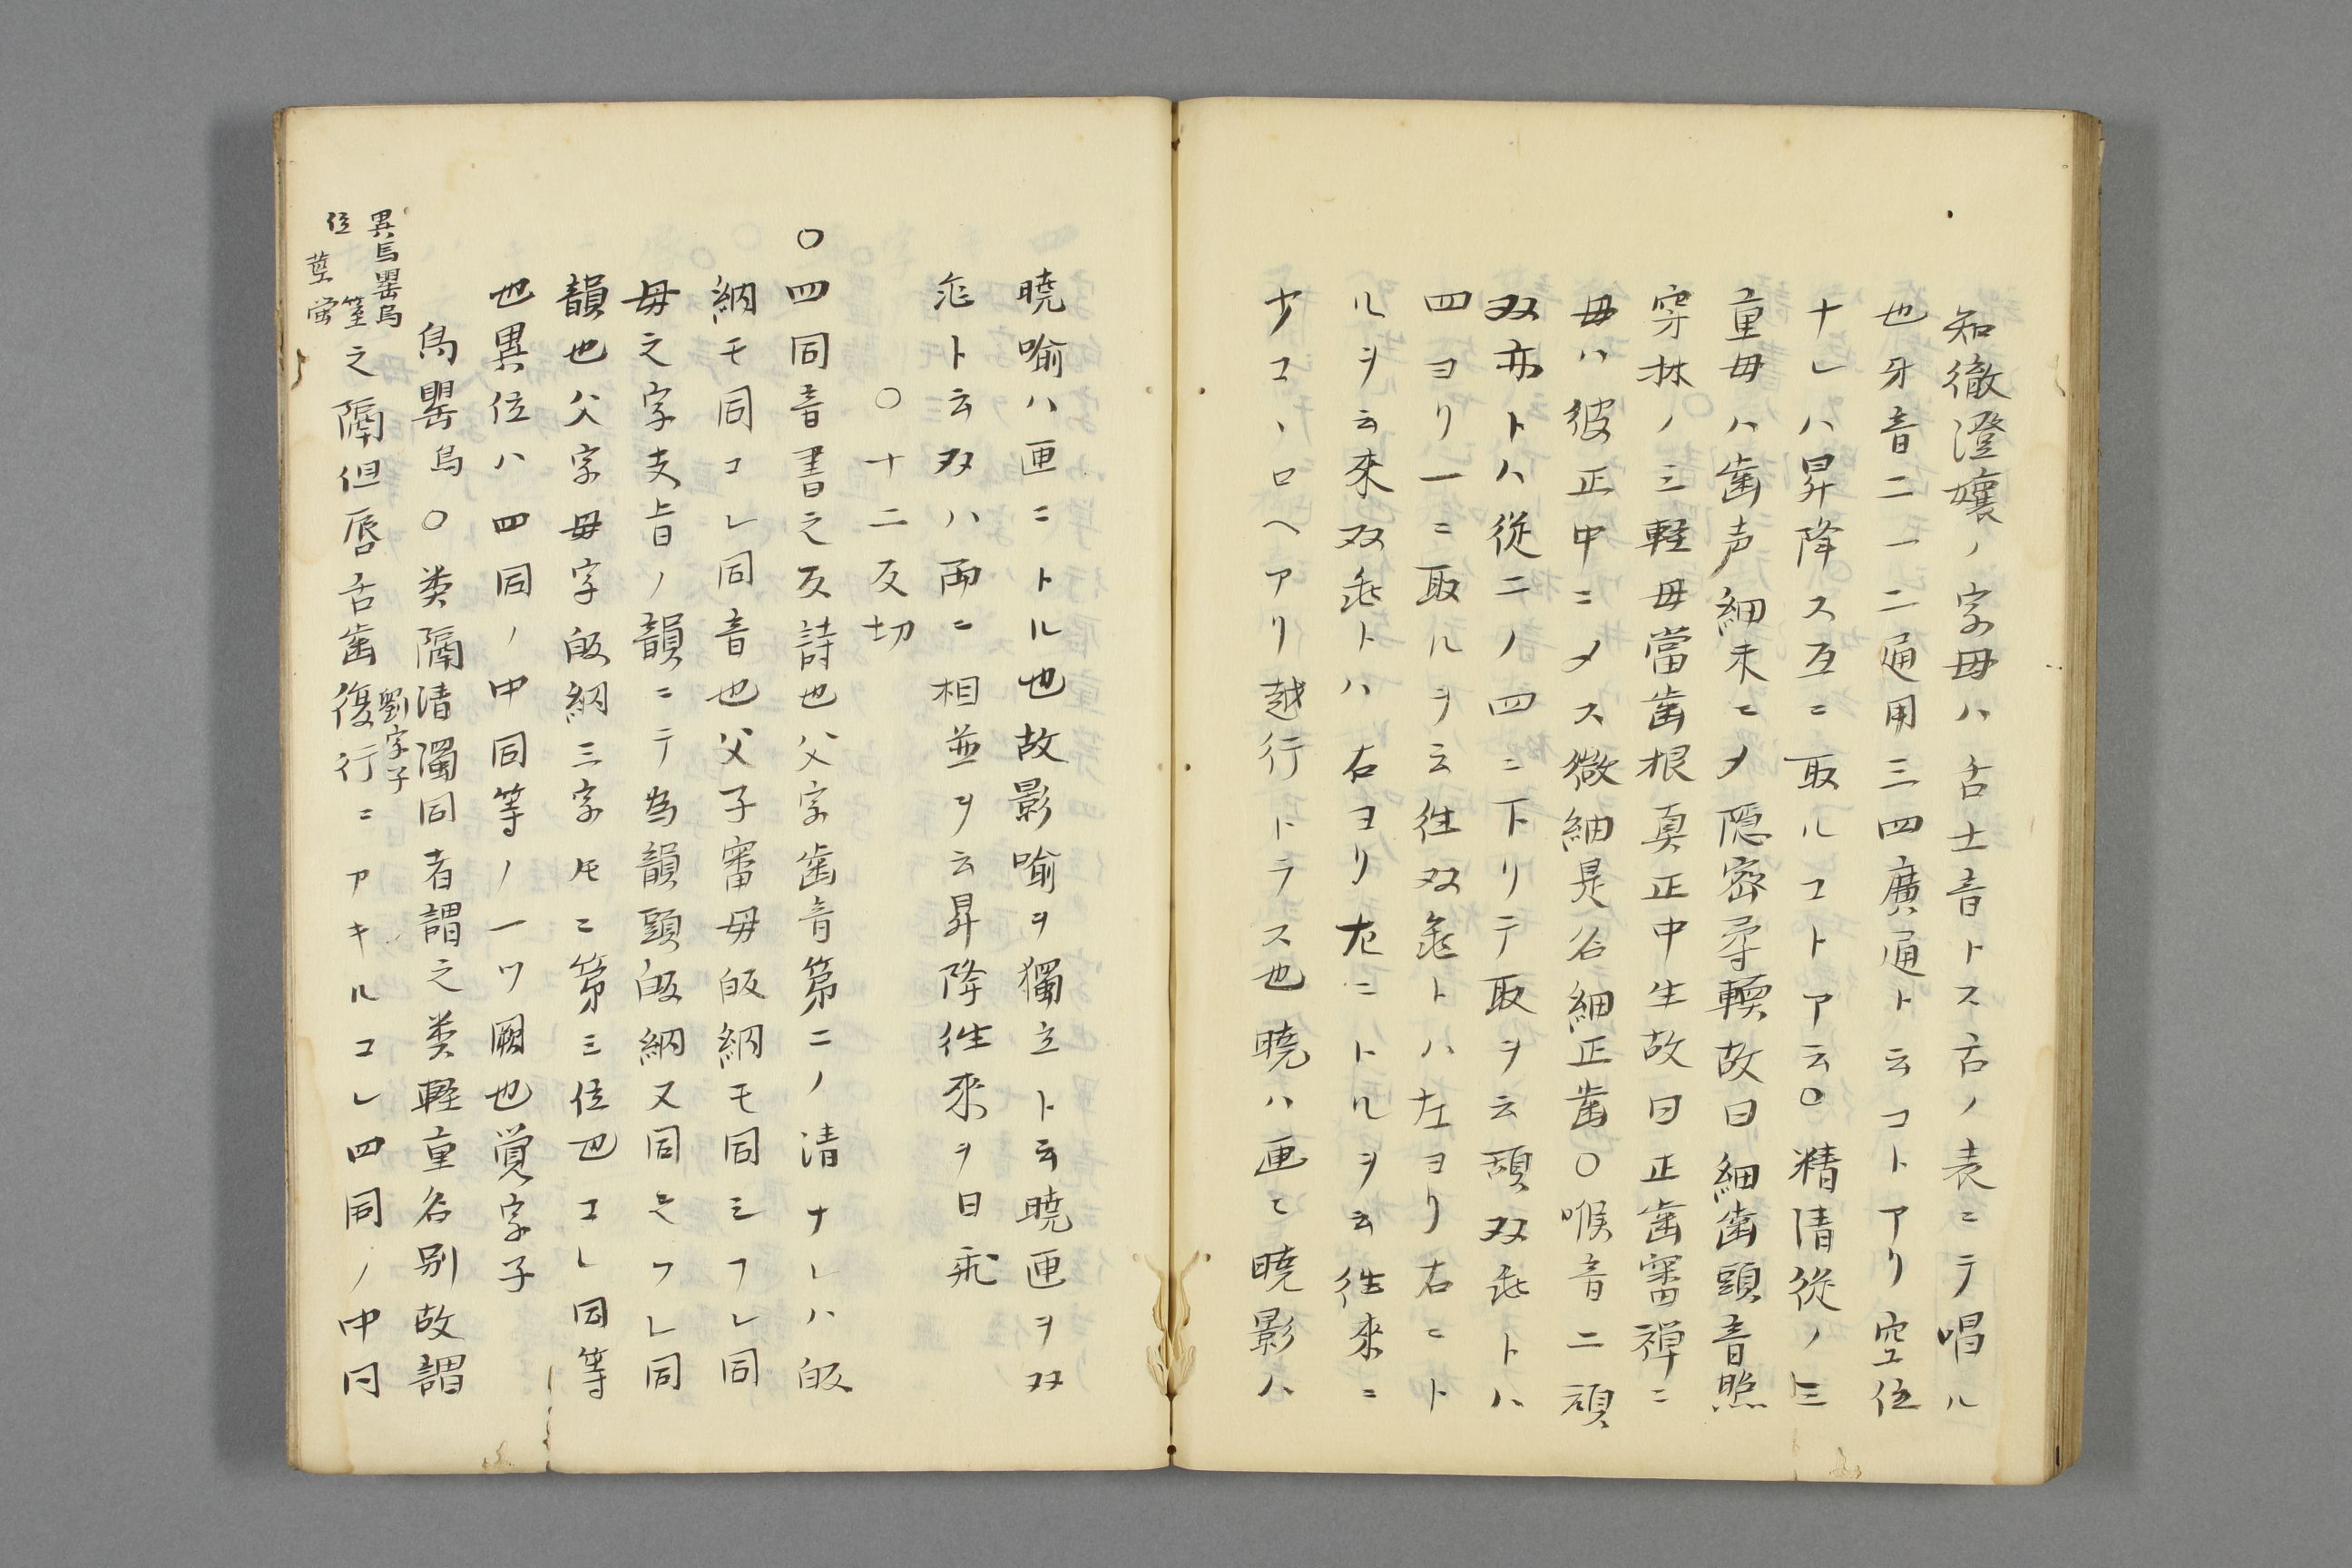 知徹澄孃ノ字母ハ舌上音トス舌ノ表ニテ唱ル
也牙音二一二通用三四廣通ト云コトアリ空位
ナレハ昇降ス互ニ取ルコトア云○精清從ノ三
重母ハ歯声細末ニメ隠密尋輭故曰細歯頭音照
穿牀ノ三軽母當歯根真正中生故曰正歯審禅ニ
母ハ彼正中ニメス微細是名細正歯○喉音二頑
双亦トハ従二ノ四ニ下リテ取ヲ云頑双飛トハ
四ヨリ一ニ取ルヲ云往双飛トハ左ヨリ右ニト
ルヲ云來双飛トハ右ヨリ左ニトルヲ云往來ニ
少コヽロヘアリ越行トラス也曉ハ匣ニ曉影ハ
曉喻ハ匣ニトル也故影喻ヲ獨立ト云曉匣ヲ双
飛ト云双ハ両ニ相並ヲ云昇降往來ヲ日飛
○十二反切
○四同音書之反詩也父字歯音第二ノ清ナレハ皈
納モ同コレ同音也父子審母皈納モ同シフレ同
母之字支旨ノ韻ニテ為韻頭皈納又同是フレ同
韻也父字母字皈納三字ﾓニ第三位也コレ同等
也異位ハ四同ノ中同等ノ一ツ闕也覚字子
烏罌烏○类隔清濁同者謂之类軽重名別故謂
之隔但唇舌歯復行ニアキルコレ四同ノ中同
劉字子
異烏罌烏
位 筳
莖 蛍